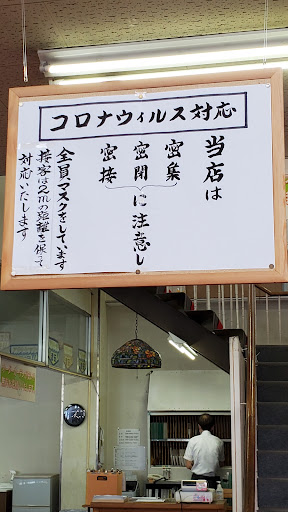 コロナウィルス対応
当店は
密集
密閉
密接
に注意し
全員マスクをしています
接客は2mの距離を保って
対応いたします